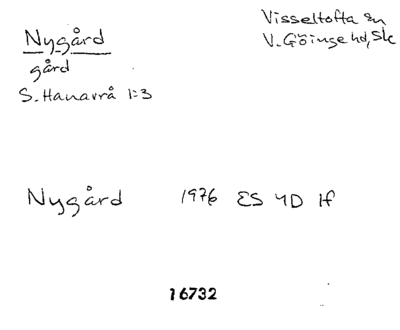 Nygård
gård
S. Hanavrå 1:3
Visseltofta sn
V. Göinge hd, Sk
Nygård 1976 ES 4D 1f
16732